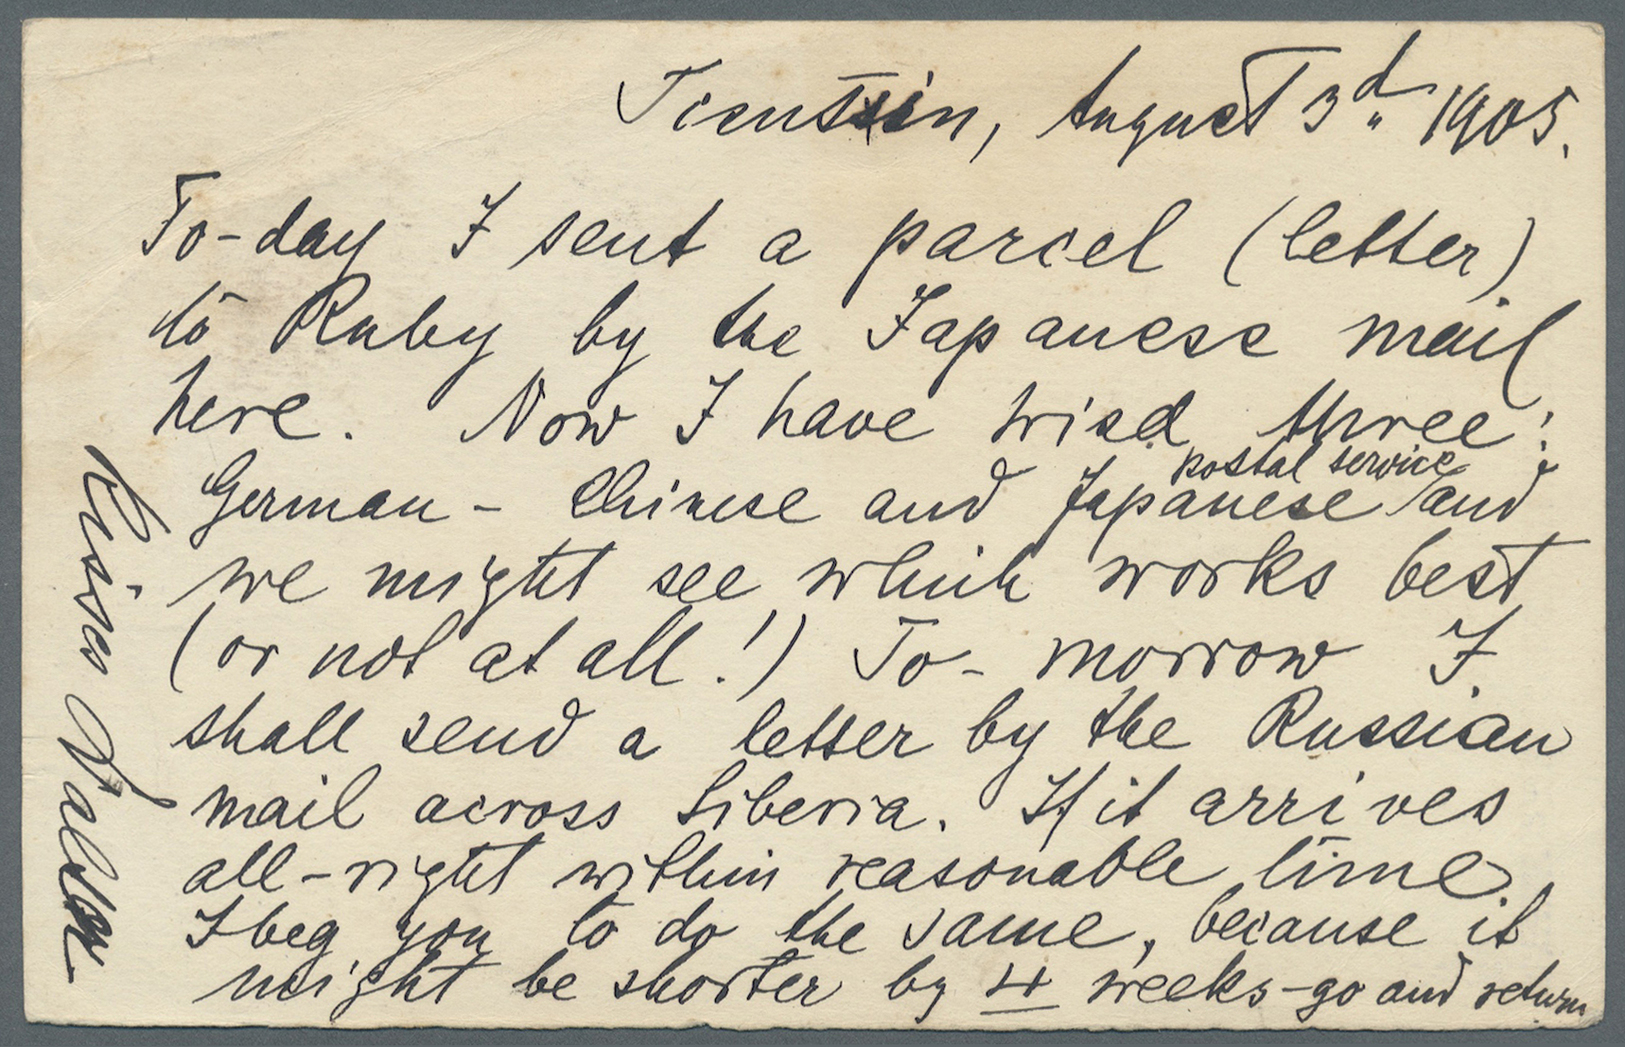 Tientsin, August 3d 1905.
To-day I sent a parcel (letter)
to Ruby by the Japanese mail
here. Now I have tried three:
German - Chinese and Japanese postal service and
we might see which works best
(or not at all!) To-morrow I
shall send a letter by the Russian
mail across Siberia. If it arrives
all-right within reasonable time,
I beg you to do the same, because it
might be shorter by 4 weeks - go and return